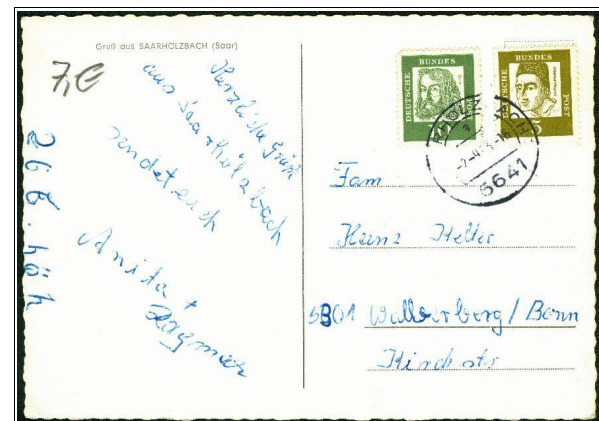 Gruß aus SAARHÖLZBACH (Saar)
7,€
Herzliche Grüße
aus Saarhölzbach
sendet euch
Anita +
Dagmar
266. höh
DEUTSCHE BUNDES POST
DEUTSCHE BUNDES POST
6641
Fam
Heinz Helter
5301 Walberberg / Bonn
Kirchstr